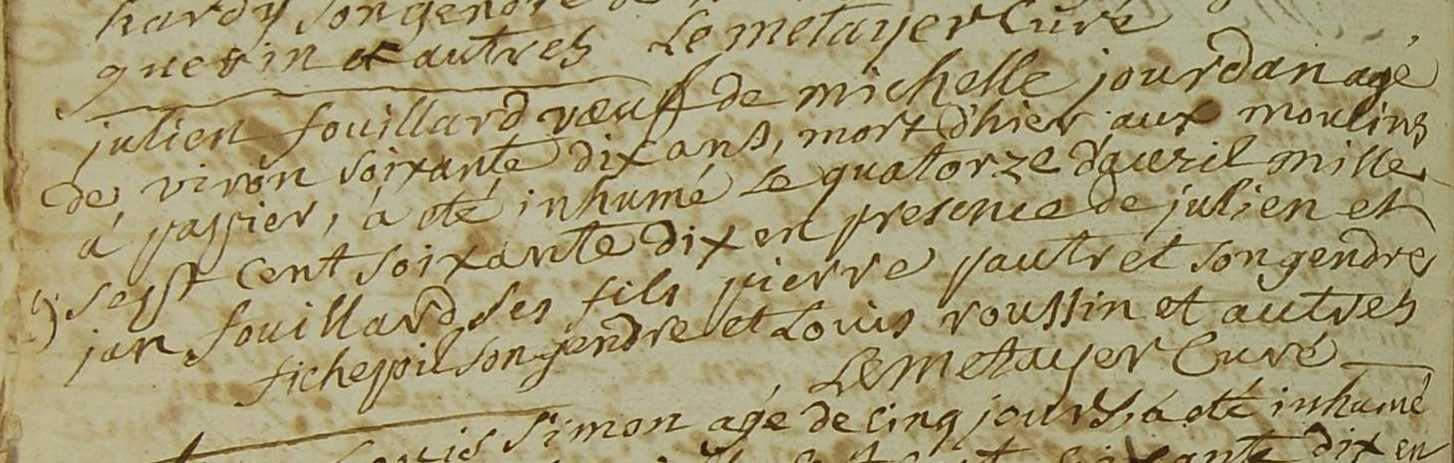 hardy son gendre de
guerin et autres Le metayer Curé
julien fouillard vœuff de michelle jourdan agé
de viron soixante dix ans, mort d'hier aux moulins
á passier, á oté inhumé Le quatorze d'avril mille
sept cent soixante dix en presence de julien et
jan fouillard ses fils pierre pautret son gendre
fichepoil son gendre et Louis roussin et autres
Le metayer Curé
Louis Simon agé de cinq jours, á oté inhumé
soixante dix en